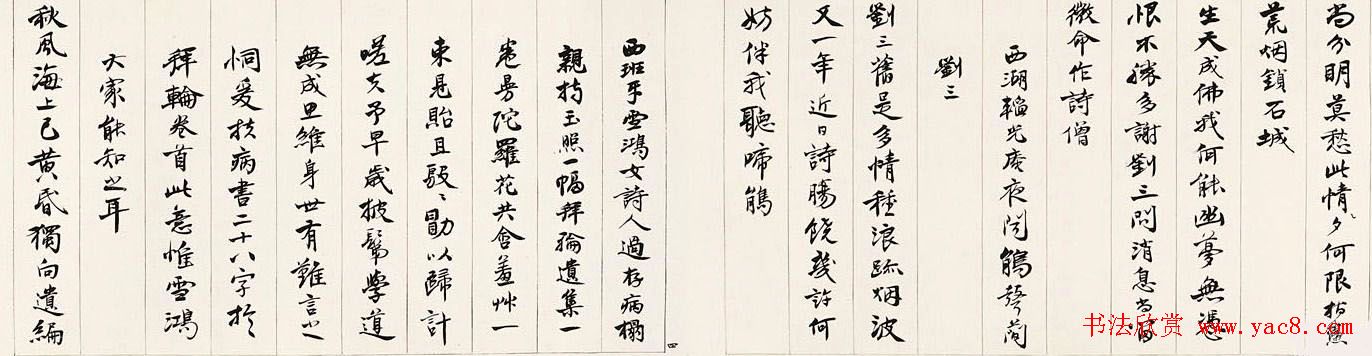 尚分明莫愁此情夕何限指點
荒烟鎖石城
生天成佛我何能幽夢無憑
恨不勝多謝劉三問消息尚留
微命作詩僧
西湖韜光庵夜聞鵑聲簡
劉三
劉三舊是多情種浪跡烟波
又一年近日詩腸饒幾許何
妨伴我聽啼鵑
四
西班牙雪鴻女詩人過存病榻
親持玉照一幅拜輪遺集一
卷曼陀羅花共含羞艸一
束見貽且殷々勖以歸計
嗟夫予早歲披鬀學道
無成思維身世有難言之
恫爰扶病書二十八字於
拜輪卷首此意惟雪鴻
大家能知之耳
秋風海上已黄昏獨向遺編
书法欣赏 www.yac8.com